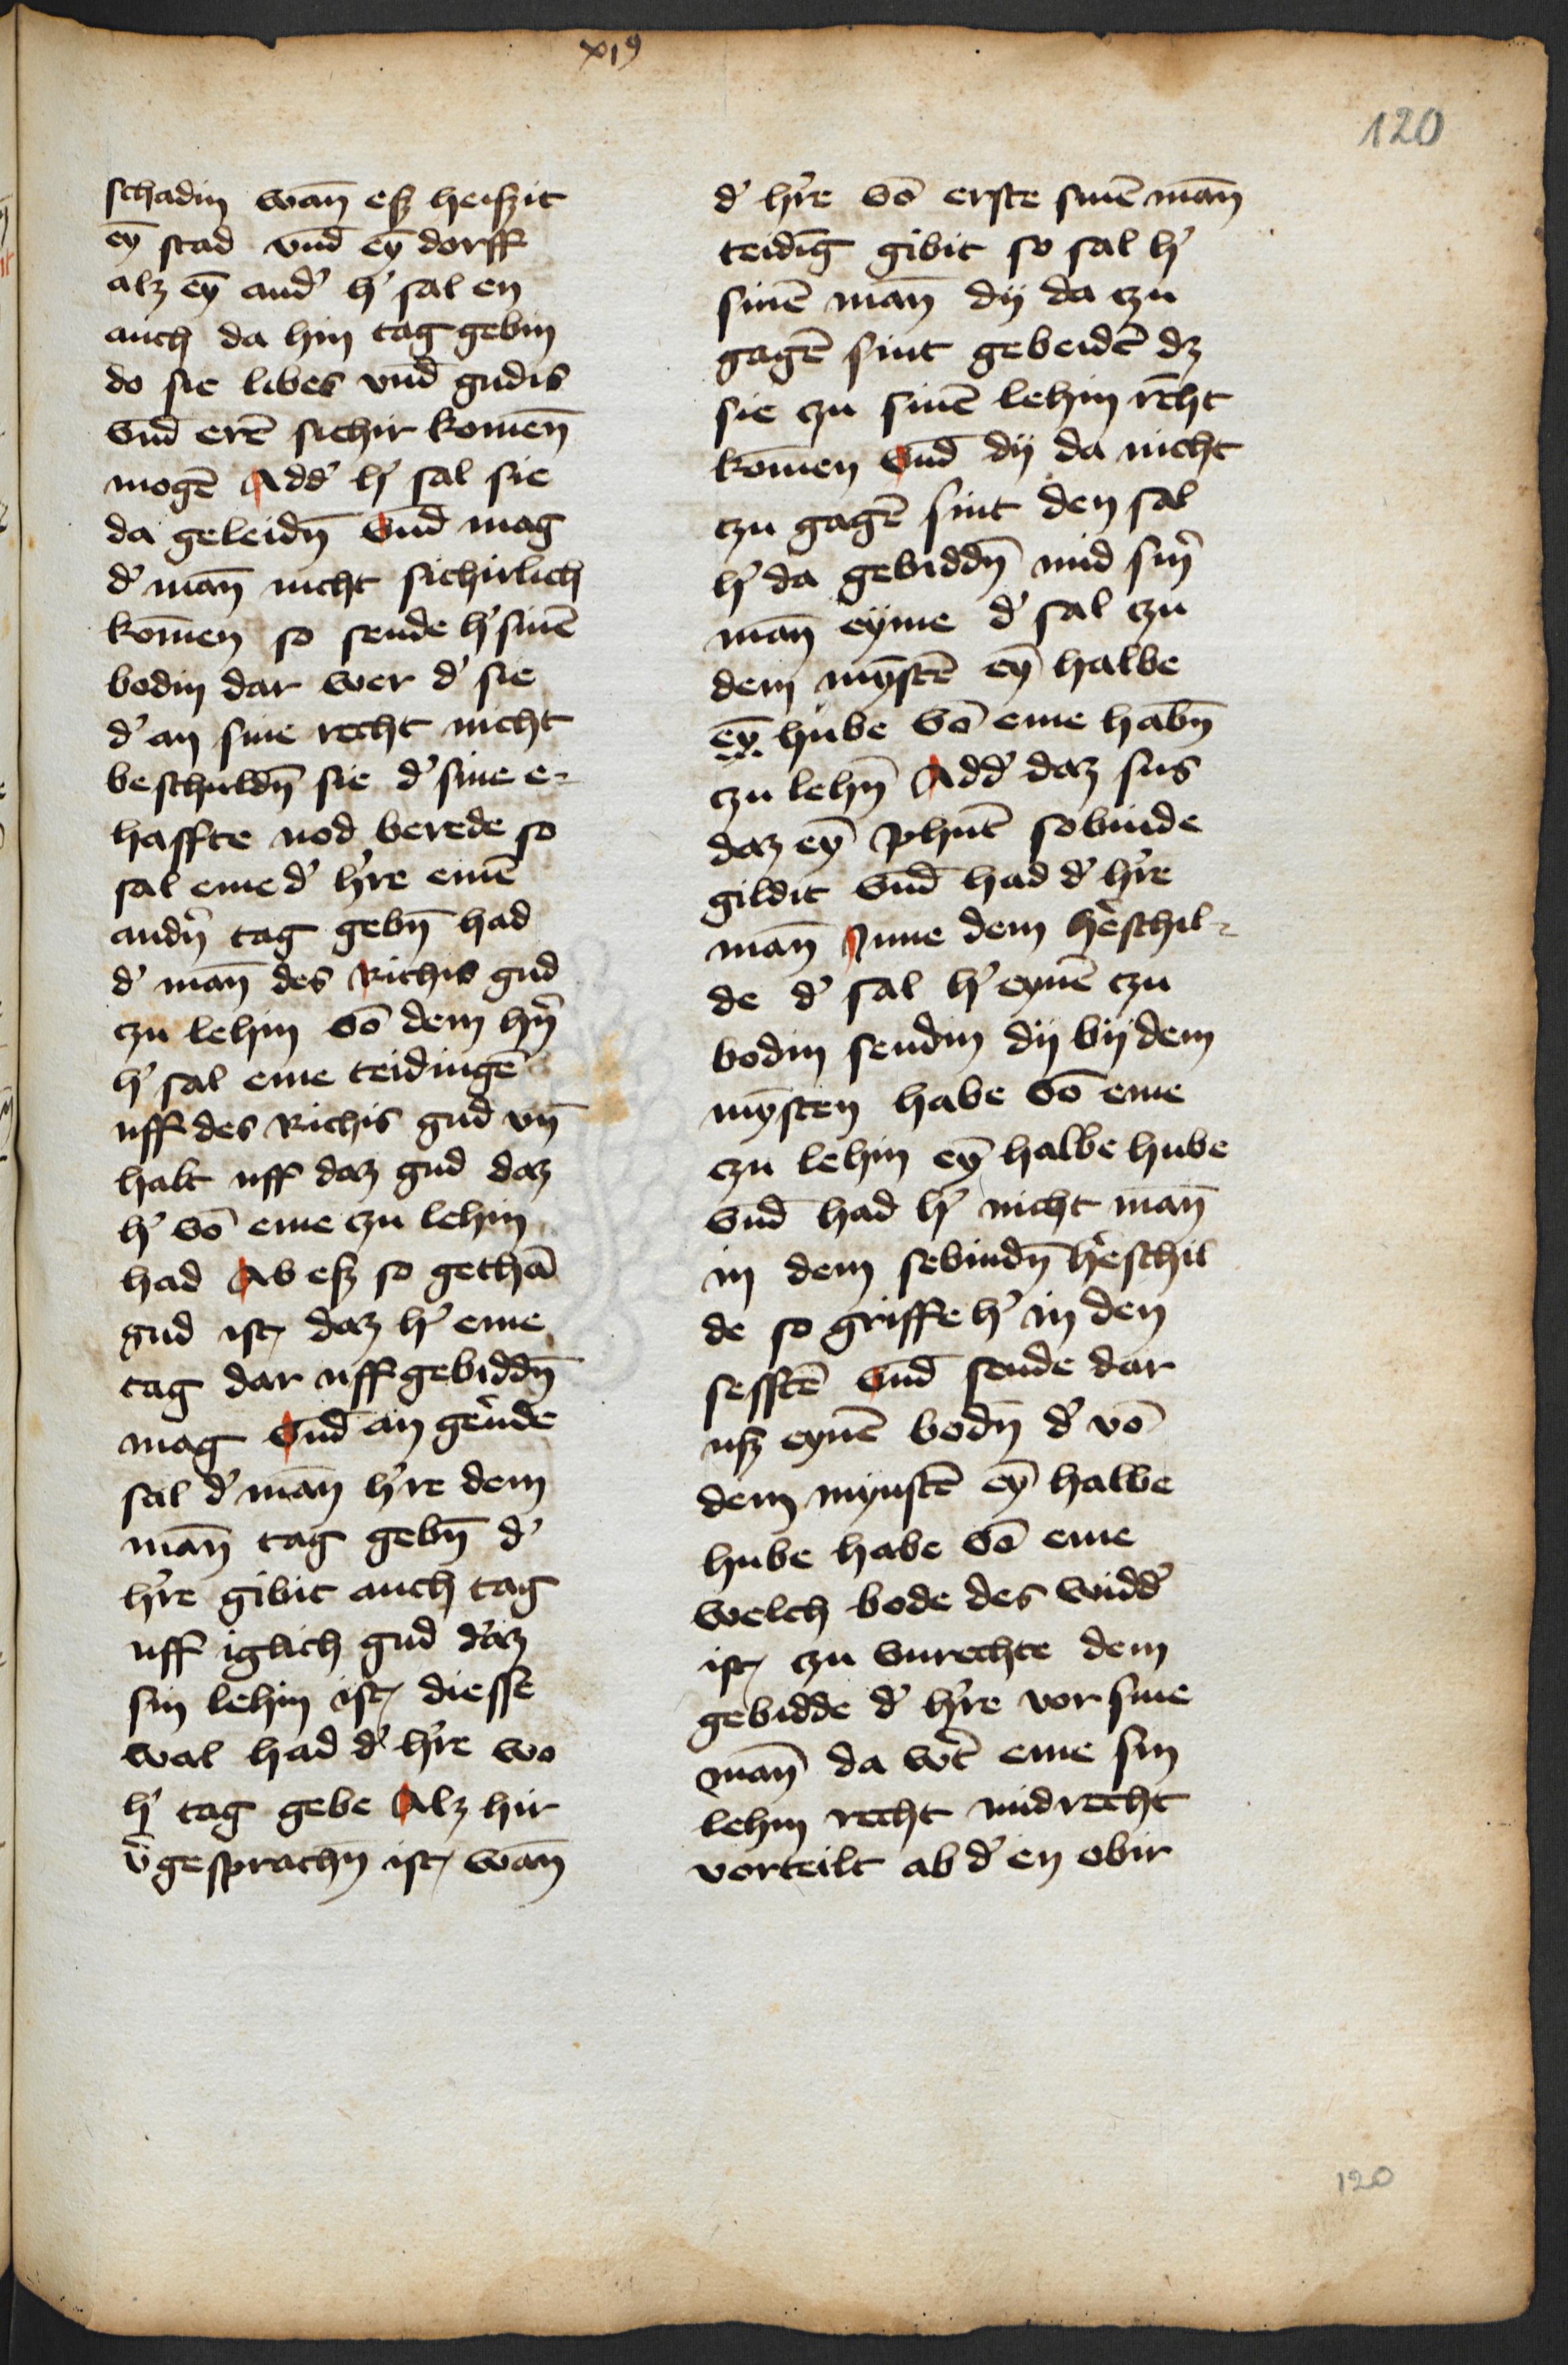 xi9
120
schadin wan̄ eſz heiſzit
eȳ stad vnd̄ eȳ dorff
alz eȳ and' h' sal en
auch da hin tag gebin
do sie libes vnd̄ gudis
vnd̄ erē sichir komen̄
mogē Add' h' sal sie
da geleidn̄ vnd̄ mag
d' man̄ nicht sichirlich
kom̄en so sende h' sinē
bodin dar wer d' sie
d' an sine recht nicht
beschuldn̄ sie d' sine e-
haffte nod berede so
sal eme d' h're einē
andn̄' tag gebn̄ had
d' man̄ des Richis gud
czu lehin vō dem hn̄'
h' sal eme teidingē
uff des Richis gud vn̄
halt uff daz gud daz
h' vō eme czu lehin
had Ab eſz so gethā
gud ist daz h' eme
tag dar uff gebiddn̄
mag vnd̄ an ge'nde
sal d' man̄ h're dem
man̄ tag gebn̄ d'
h're gibit auch tag
uff iglich gud daz
sin lehin ist diesse
wal had d' h're wo
h' tag gebe Alz hir
v' gesprachn̄ ist wan̄
d' h're vō erste sinē man̄
teidin̄g gibit so sal h'
sinē man̄ dij da czu
gagē sint gebeidē dz
sie czu sinē lehin rēcht
kom̄en vnd̄ dij da nicht
czu gagē sint den sal
h' da gebiddn̄ mid sin'
man̄ eyme d' sal czu
dem my̅stē eȳ halbe
eȳ hube vō eme habn̄
czu lehn̄ Add' daz sus
daz eȳ phunt sobinde
gildit vnd̄ had d' h're
man̄ Inne dem he'schil-
de d' sal h' eynē czu
bodin sendin dij bij dem
my̅sten habe vō eme
czu lehin eȳ halbe hube
vnd̄ had h' nicht man̄
in dem sebindn̄ he'schil
de so griffe h' in den
sefftē vnd̄ sende dar
uſz eynē bodn̄ d' vō
dem mynstē eȳ halbe
hube habe vō eme
welch bode des widd'
ist czu vnrechte dem
gebidde d' h're vor sine
man̄ da w't eme sin
lehin recht mid recht
vorteilt ab d' en obir
120